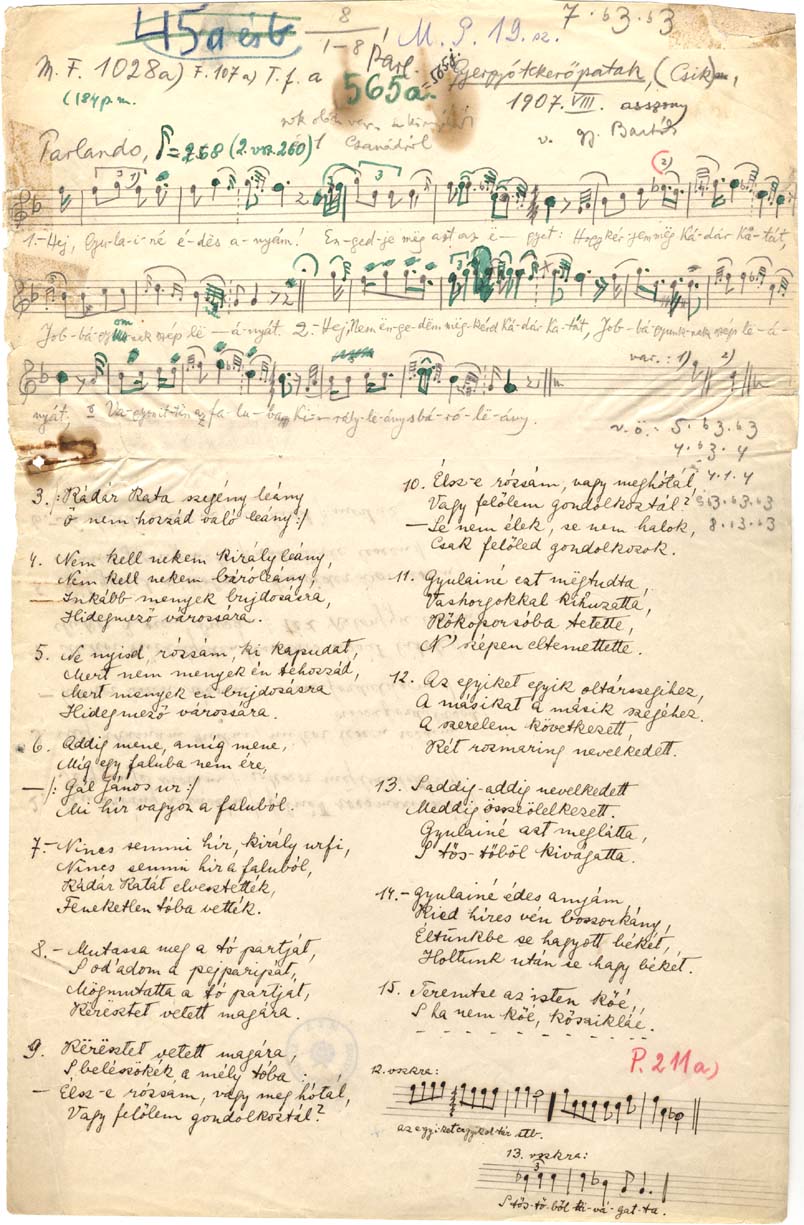 45a és b
8
1-8
Párl.
M. S. 19. sz.
7. b3. b3
M. F. 1028a) F. 107a) T. f. a
565a.
=565j.
Gyergyótekerőpatak, (Csík)m.,
(184p.m.
1907. VIII. asszony
Csanádról
v. gy. Bartók
Parlando, ♪=258 (2. vsz. 260)
1.-Hej, Gyu-la-i-né é-dës a-nyám! En-ged-je mëg azt az ë- gyet: Hogy kér-jem mëg Ká-dár Ka-tát,
Job-bá-gyom-nak szép lë-á-nyát. 2.- Hej, Nem ën-ge-dëm mëg-kérd Ká-dár Ka-tát, Job-bá-gyunk-nak szép lë-á-
var.: 1) 2)
nyát, Va-gyon itt-tën az fa-lu-ba Ki-rály-lë-ány s bá-ró-lë-ány.
v.ö.: 5. b3. b3
4. b3. 4
4. 1. 4
5. b3. b3. b3
8. 13. b3
3. /: Kádár Kata szegény leány
Ő nem hozzád való leány :/
4. Nem kell nekem király leány,
Nem kell nekem báróleány,
— Inkább menyek bujdosásra,
Hidegmező várossára.
5. Ne nyisd, rózsám, ki kapudat,
Mert nem menyek én tehozzád,
— Mert menyek én bujdosásra
Hidegmező várossára.
6. Addig mene, amíg mene,
Míg egy faluba nem ére,
— /: Gál János ur :/
Mi hír vagyon a faluból.
7.- Nincs semmi hír, király urfi,
Nincs semmi hír a faluból,
Kádár Katát elvesztették,
Feneketlen tóba vették.
8. - Mutassa meg a tó partját,
S od'adom a pejparipát,
Mögmutatta a tó partját,
Kërësztet vetett magára.
9. Kërësztet vetett magára,
S beleszökék a mély tóba :
— Élsz-e rózsám, vagy meghótál,
Vagy felőlem gondolkoztál?
10. Élsz-e rózsám, vagy meghótál,
Vagy felőlem gondolkoztál?
— Se nem élek, se nem halok,
Csak felőled gondolkozok.
11. Gyulainé ezt mëgtudta,
Vashorgokkal kihuzatta,
Kőkoporsóba tetette,
N' szépen eltemettette.
12. Az egyiket egyik oltárszegihez,
A másikat a másik szegéhez.
A szerelem következett,
Két rozmaring nevelkedett.
13. S addig-addig nevelkedett
Meddig összölelkezett.
Gyulainé azt meglátta,
S tős-tőből kivágatta.
14.- Gyulainé édes anyám,
Kied híres vén boszorkány,
Éltünkbe se hagyott békét,
Holtunk után se hagy békét.
15. Teremtse az isten kőé,
S ha nem kőé, kőszikláé.
P. 211a)
12. vszkra:
az egyi-ket egyik ol-tár stb.
13. vszkra:
S tős-tő-ből ki-vá-gat-ta.